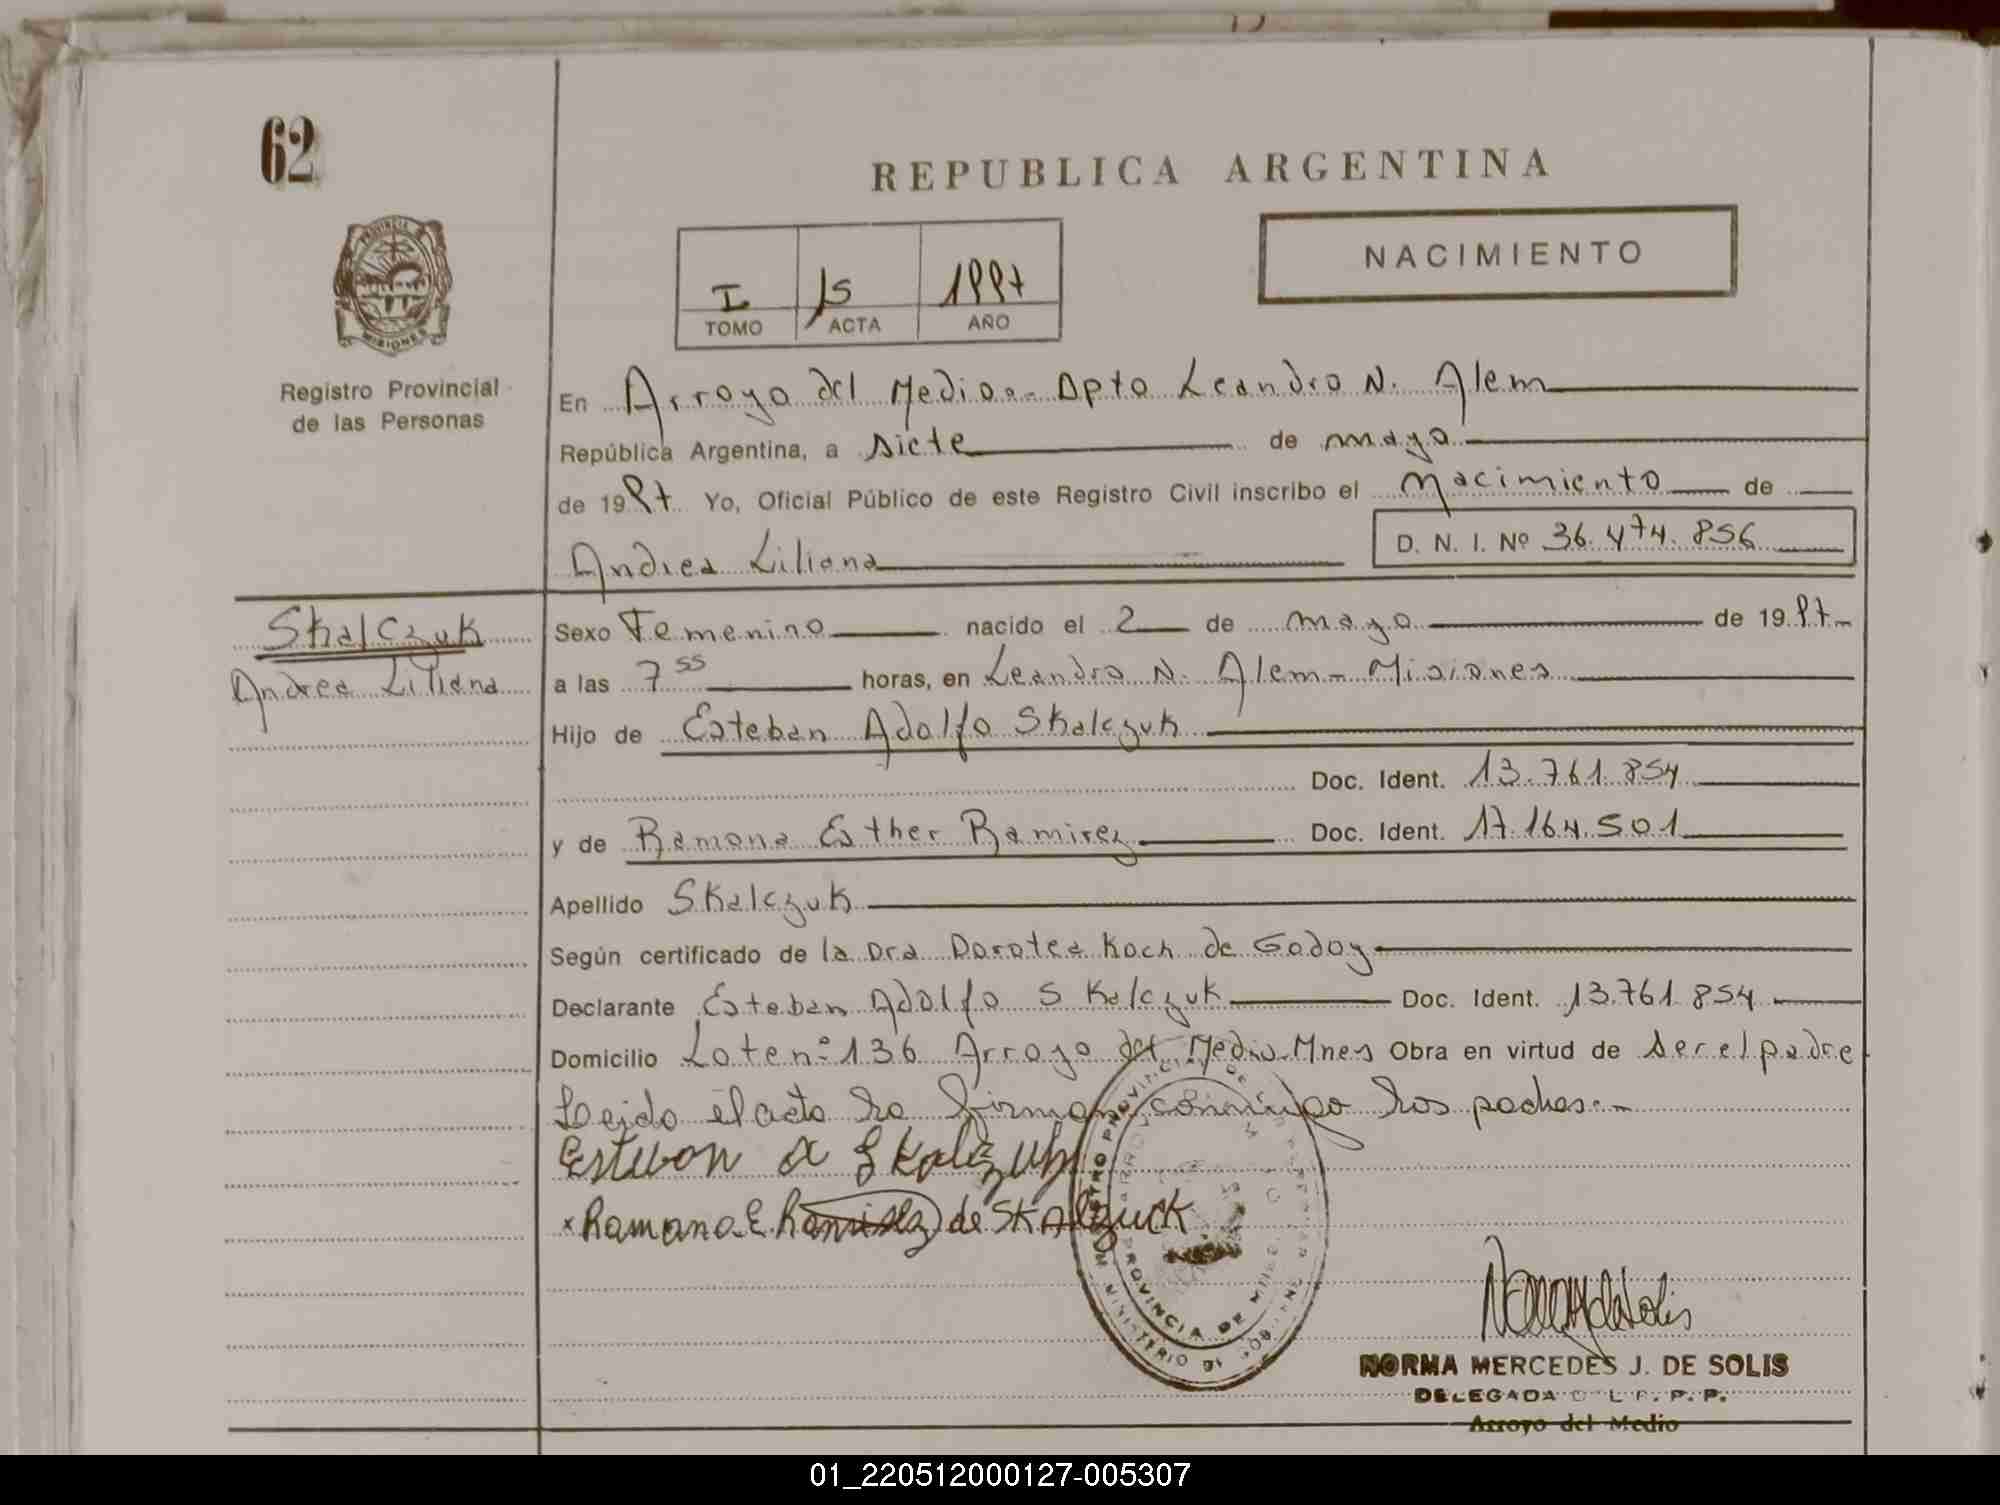 62
REPUBLICA ARGENTINA
PROVINCIA
MISIONES
NACIMIENTO
I 15 1997
TOMO ACTA AÑO
Registro Provincial
de las Personas
En Arroyo del Medio.- Dpto Leandro N. Alem
República Argentina, a siete de mayo
de 1997 Yo, Oficial Público de este Registro Civil inscribo el Nacimiento de
Andrea Liliana D. N. I. Nº 36.474.856
Skalczuk
Andrea Liliana
Sexo Femenino nacido el 2 de mayo de 1997
a las 7 55 horas, en Leandro N. Alem - Misiones
Hijo de Esteban Adolfo Skalczuk
Doc. Ident. 13.761.854
y de Ramona Esther Ramirez Doc. Ident. 17.164.501
Apellido Skalczuk
Según certificado de la Dra Dorotea Koch de Godoy
Declarante Esteban Adolfo Skalczuk Doc. Ident. 13.761.854
Domicilio Lote nº 136 Arroyo del Medio. Mnes Obra en virtud de ser el padre
Leido el acta la firman conmigo los padres.-
Esteban A Skalczuk
x Ramona E. Ramirez de SKAlzucK
PROVINCIA DE MISIONES
MINISTERIO DE
NORMA MERCEDES J. DE SOLIS
DELEGADA
Arroyo del Medio
01_220512000127-005307